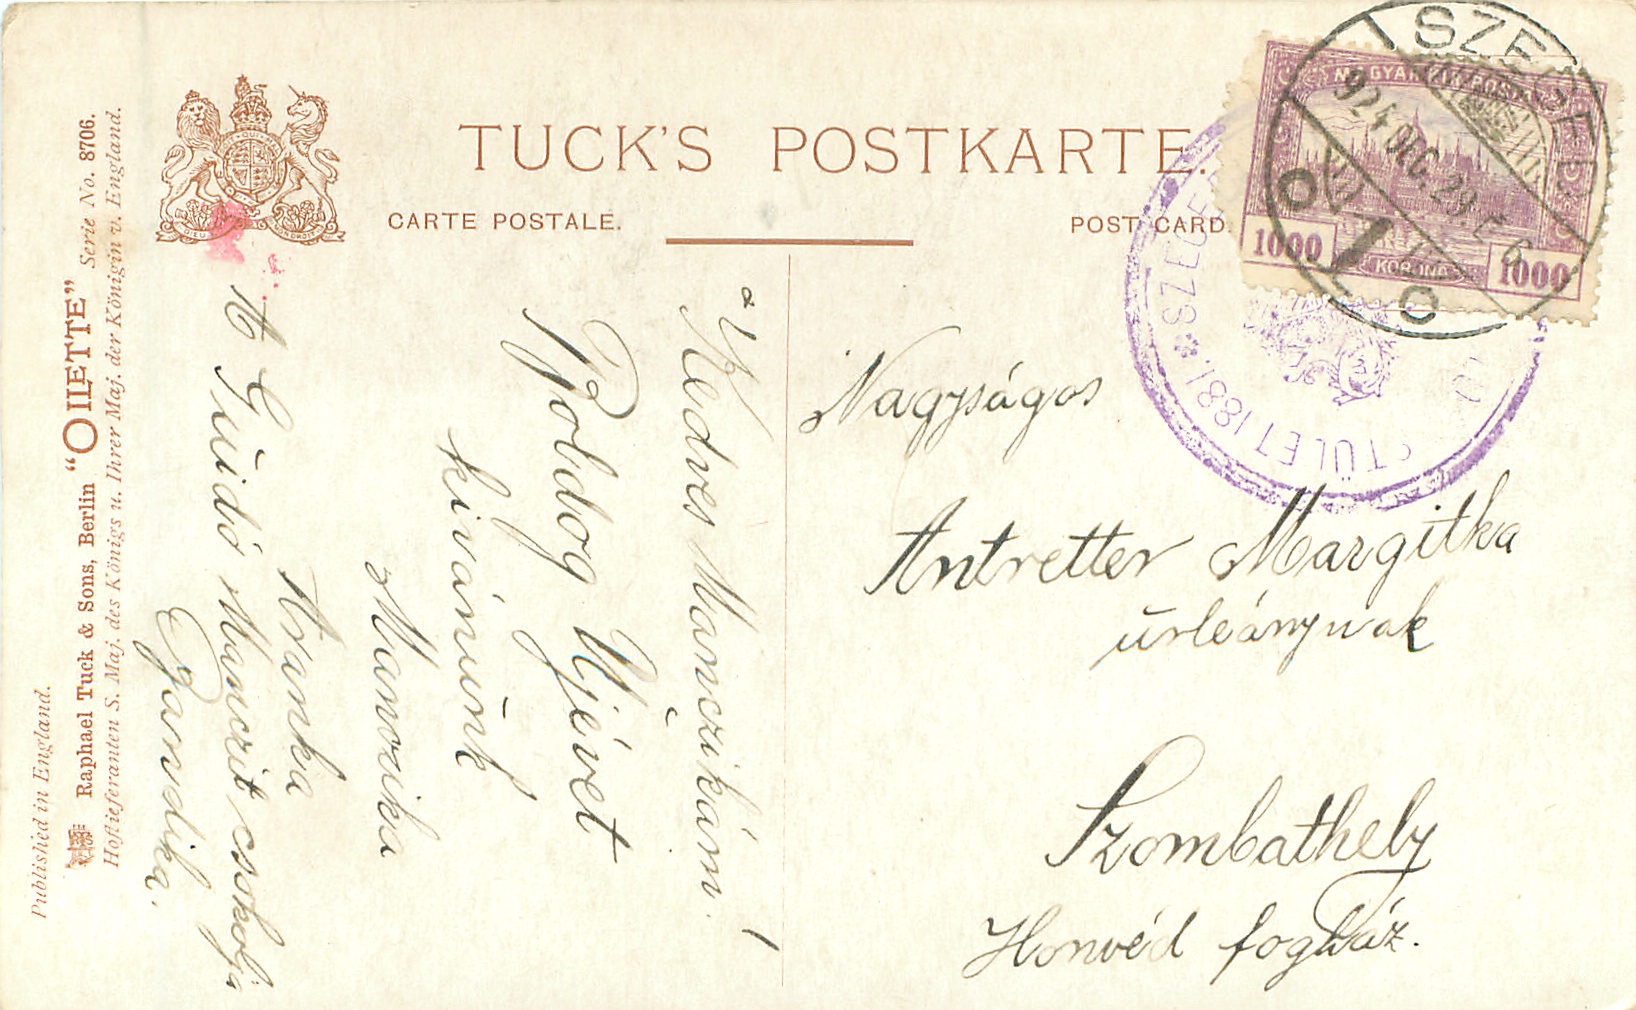 TUCK'S POSTKARTE.
CARTE POSTALE.
POST CARD.
Published in England.
Raphael Tuck & Sons, Berlin "OILETTE" Serie No. 8706.
Hoflieferanten S. Maj. des Königs u. Ihrer Maj. der Königin v. England.
SZEGED
924 DEC. 29
1
MAGYAR KIR. POSTA
1000
1000
KORONA
SZEGE
TÜLET 1881.
Kedves Manczikám!
Boldog Ujévet
kivánunk
Manczika
Aranka
A Güidó Manczit csókolja
Nagyságos
Antretter Margitka
úrleánynak
Szombathely
Honvéd fogház.